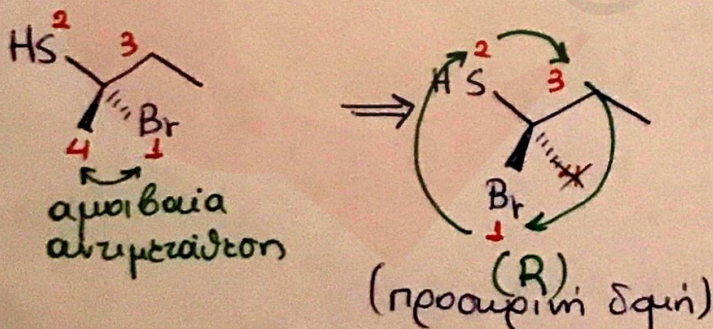 HS 2 3
Br
4 1
αμοιβαία
αντιμετάθεση
⇒
HS 2 3
4
Br
1
(R)
(προσωρινή δομή)